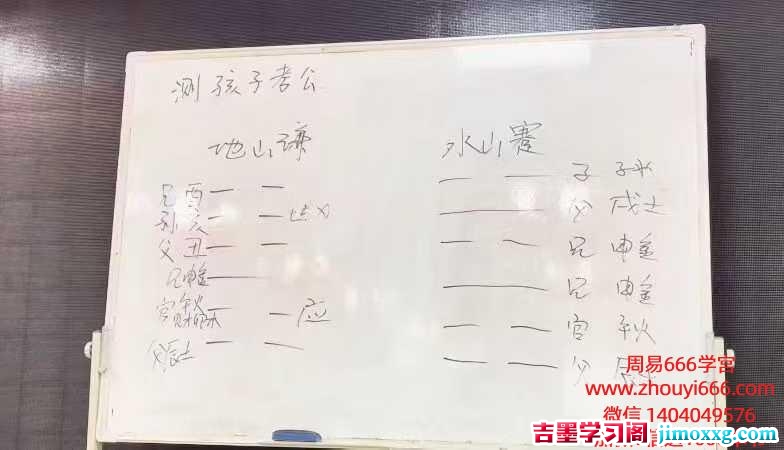 测孩子考公
地山谦
水山蹇
兄酉
孙亥 世×
父丑
兄申金
官午火 应
父辰土
子 子水
父 戌土
兄 申金
兄 申金
官 午火
父 辰土
周易666学宫
www.zhouyi666.com
微信 1404049576
吉墨学习阁 jimoxxg.com